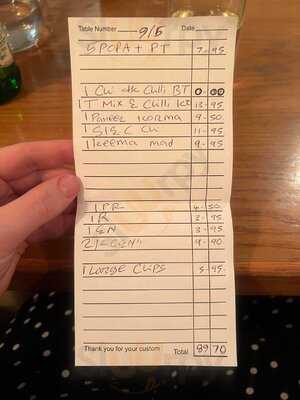 Table Number 9/5 Date
5 POPA + PT 7-95
1 Chi Chilli BT
1 T Mix & Chilli 13-95
1 Paneer Korma 9-50
1 11-95
1 Keema mad 9-95
1 PR 4-50
1 R 3-95
1 EN 3-95
2 9-90
1 Large Chips 5-95
Thank you for your custom Total 89 70